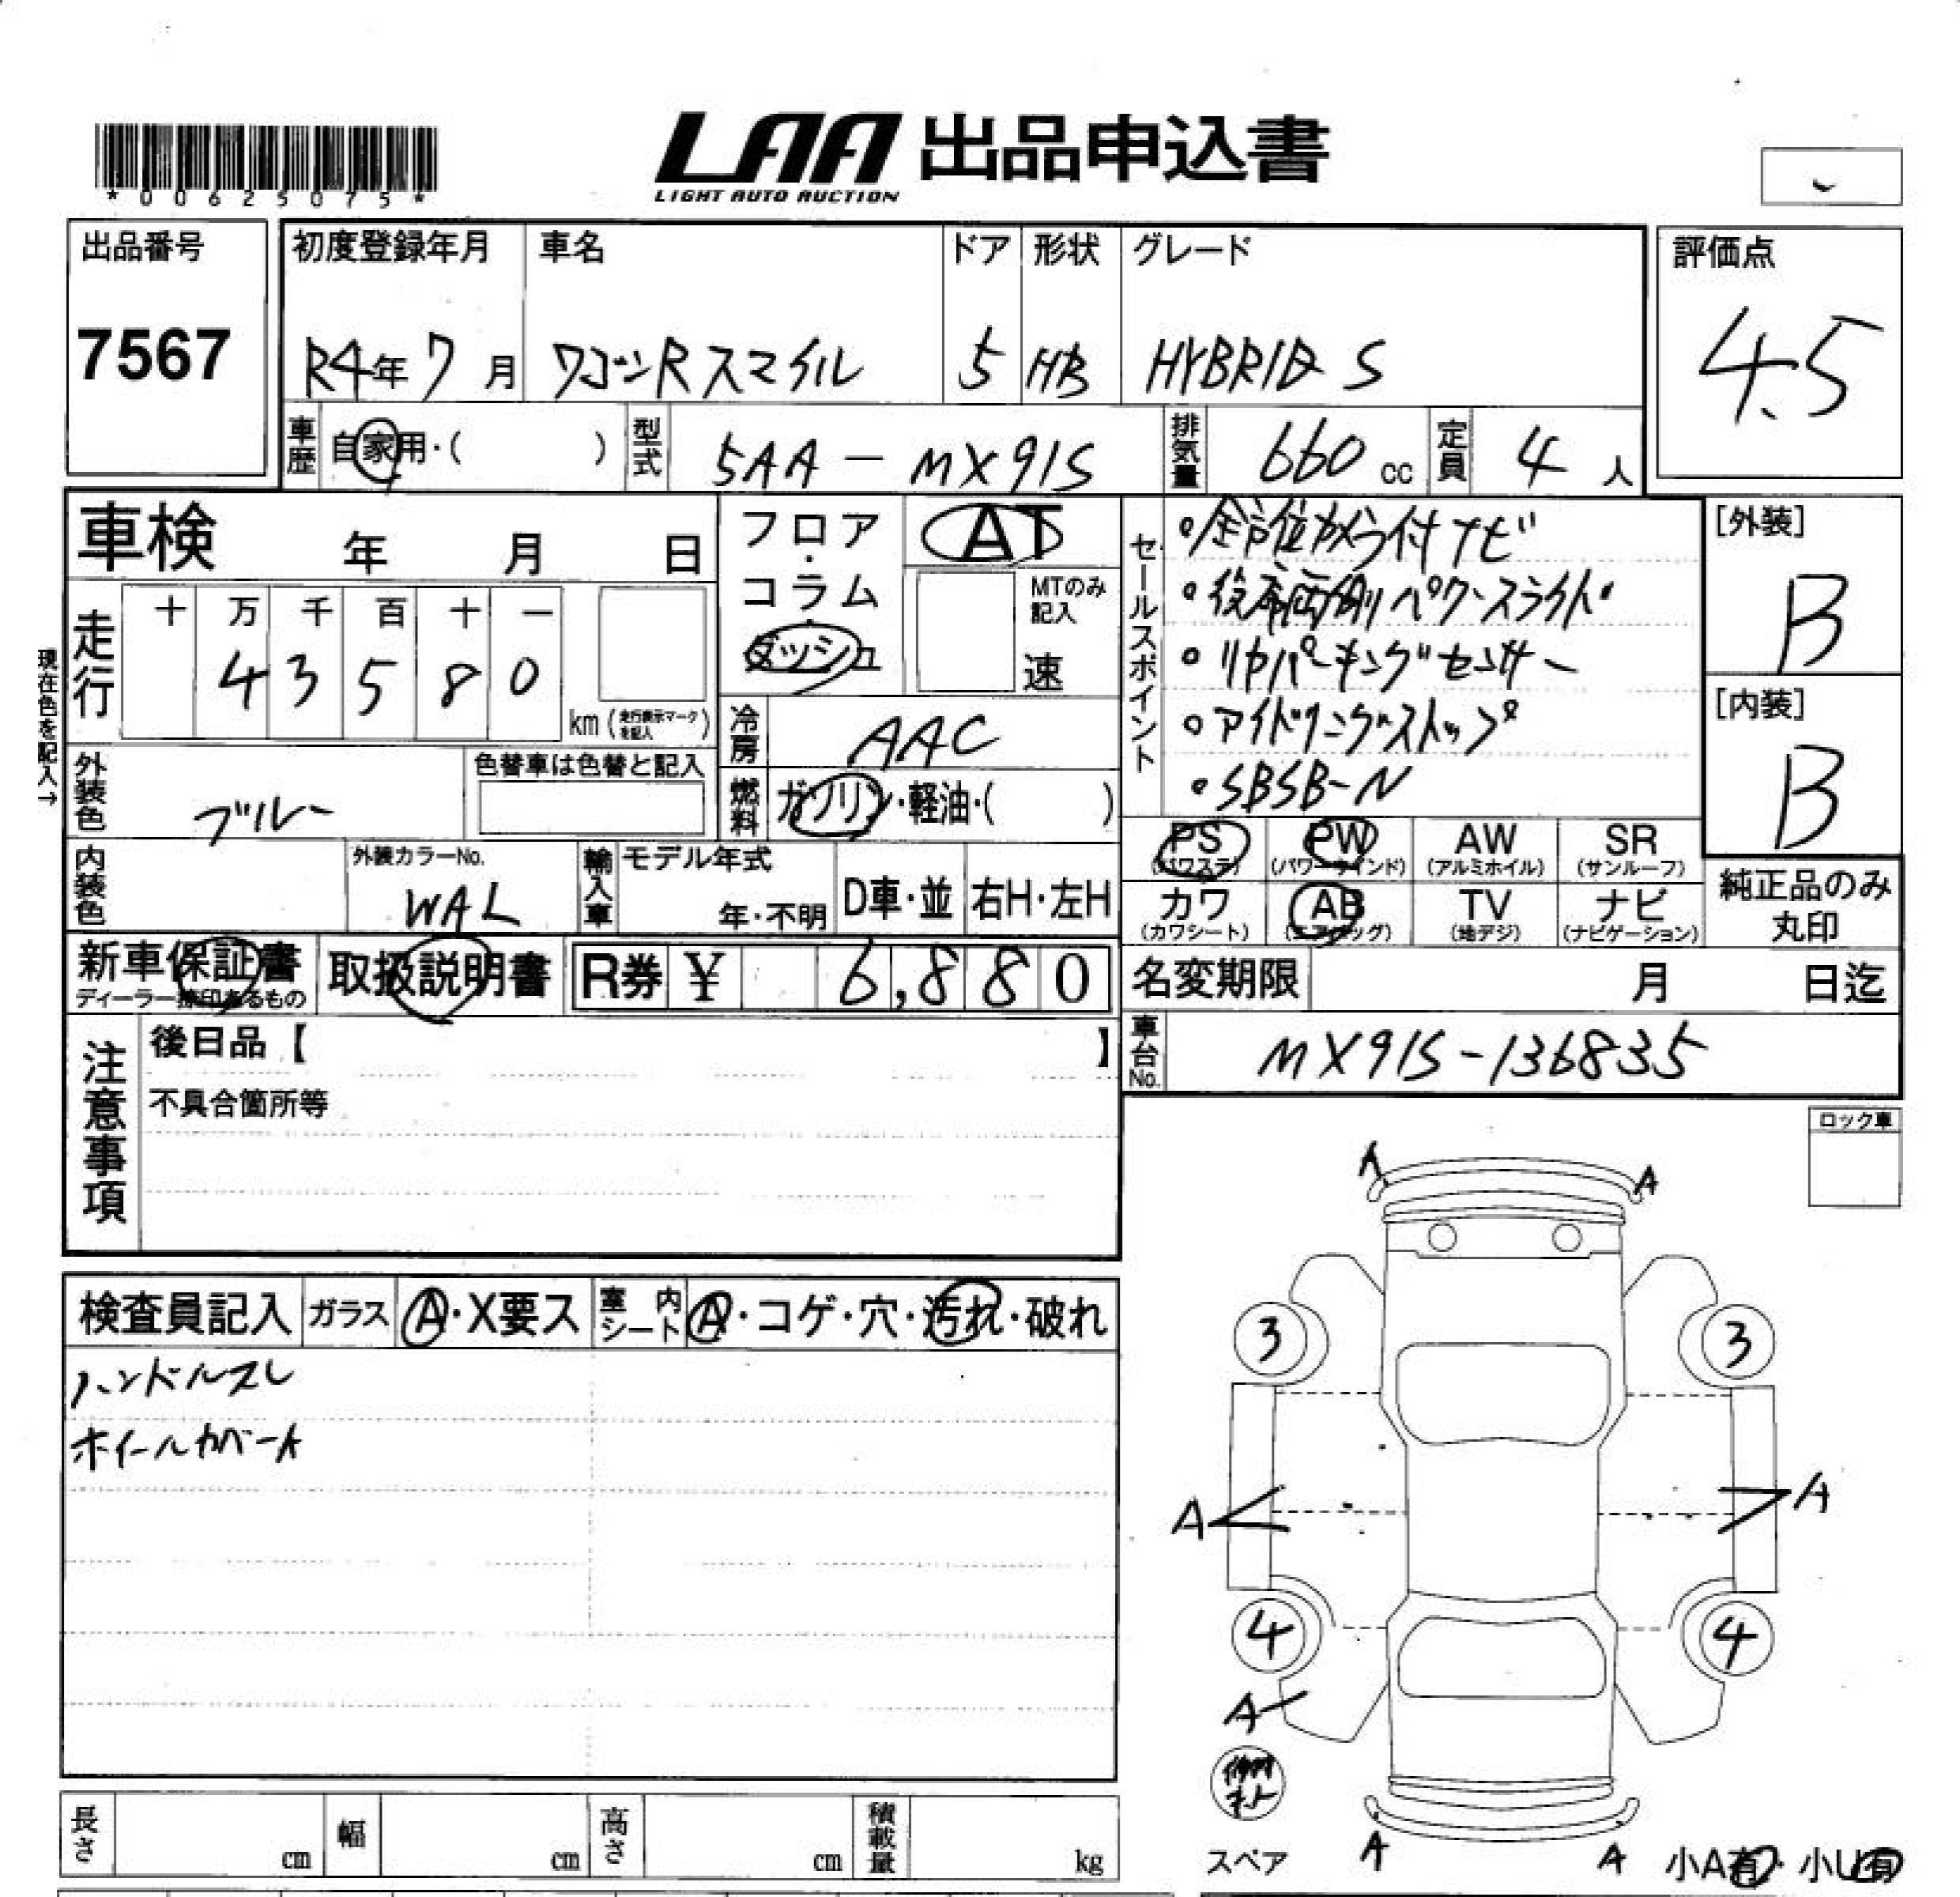 *00625075*
LAA 出品申込書
LIGHT AUTO AUCTION
出品番号
7567
初度登録年月
R4年 7月
車名
ワゴンRスマイル
ドア
5
形状
HB
グレード
HYBRID S
評価点
4.5
車歴 自家用・( )
型式 5AA-MX91S
排気量 660 cc
定員 4 人
車検 年 月 日
フロア・コラム・ダッシュ
AT
MTのみ記入
速
現在色を記入→
走行
十 万 千 百 十 一
4 3 5 8 0
km (走行表示マークを記入)
冷房 AAC
燃料 ガソリン・軽油・( )
外装色 ブルー
色替車は色替と記入
内装色
外装カラーNo.
WAL
輸入車
モデル年式
年・不明
D車・並
右H・左H
セールスポイント
・全方位カメラ付ナビ
・後席両側パワースライド
・リヤパーキングセンサー
・アイドリングストップ
・SBSB-N
[外装]
B
[内装]
B
PS (パワステ)
PW (パワーウインド)
AW (アルミホイル)
SR (サンルーフ)
カワ (カワシート)
AB (エアバッグ)
TV (地デジ)
ナビ (ナビゲーション)
純正品のみ
丸印
新車保証書
ディーラー捺印あるもの
取扱説明書
R券 ¥ 6,880
名変期限 月 日迄
車台No. MX91S-136835
注意事項
後日品【 】
不具合箇所等
ロック車
検査員記入
ガラス A・X要ス
室内シート A・コゲ・穴・汚れ・破れ
ハンドルスレ
ホイールカバーA
A A
3 3
A A
4 4
A
スペア
A A
小A有・小U有
長さ cm
幅 cm
高さ cm
積載量 kg